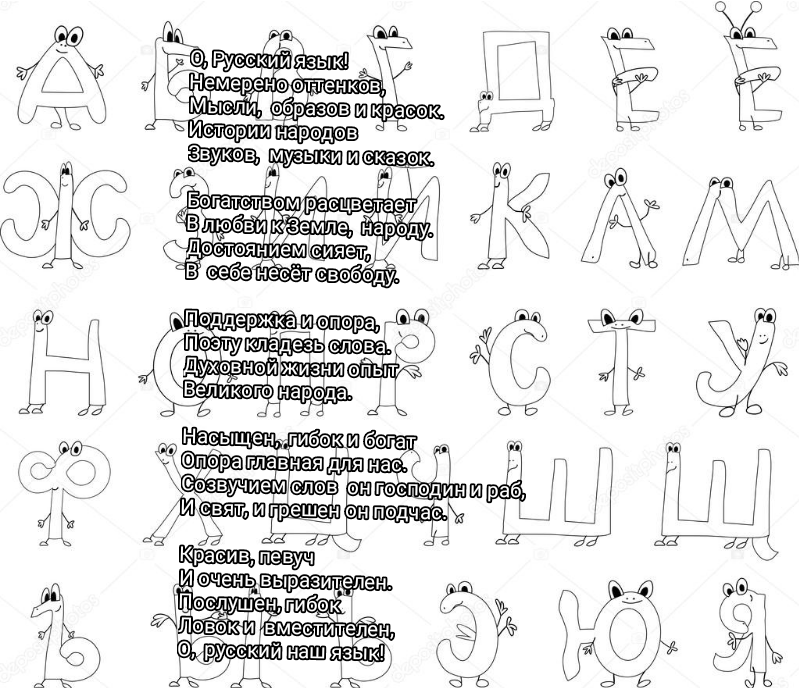 О, Русский язык!
Немерено оттенков,
Мысли, образов и красок.
Истории народов
Звуков, музыки и сказок.
Богатством расцветает
В любви к Земле, народу.
Достоянием сияет,
В себе несёт свободу.
Поддержка и опора,
Поэту кладезь слова.
Духовной жизни опыт
Великого народа.
Насыщен, гибок и богат
Опора главная для нас.
Созвучием слов он господин и раб,
И свят, и грешен он подчас.
Красив, певуч
И очень выразителен.
Послушен, гибок
Ловок и вместителен,
О, русский наш язык!